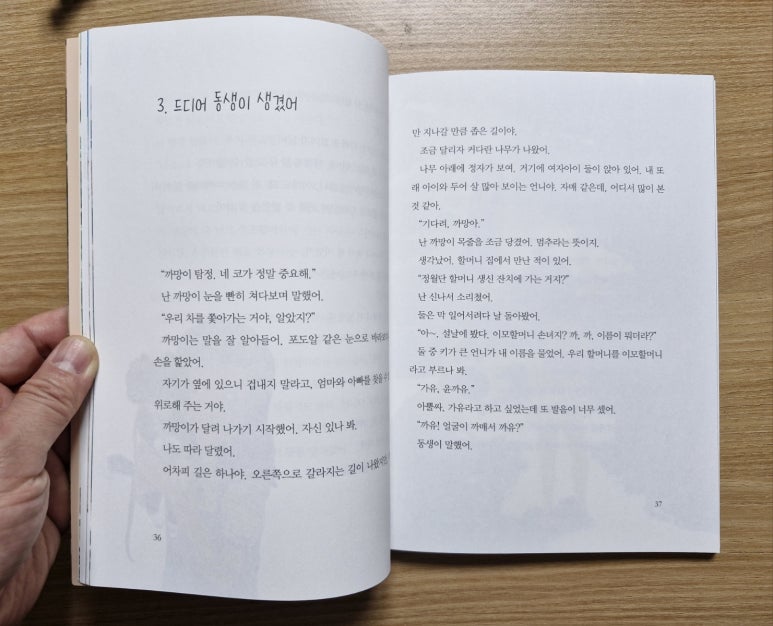 3. 드디어 동생이 생겼어
“까망이 탐정. 네 코가 정말 중요해.”
난 까망이 눈을 빤히 쳐다보며 말했어.
“우리 차를 쫓아가는 거야. 알았지?”
까망이는 말을 잘 알아들어. 포도알 같은 눈으로
손을 핥았어.
자기가 옆에 있으니 겁내지 말라고, 엄마와 아빠를 찾을 수
위로해 주는 거야.
까망이가 달려 나가기 시작했어. 자신 있나 봐.
나도 따라 달렸어.
어차피 길은 하나야. 오른쪽으로 갈라지는 길이
36
만 지나갈 만큼 좁은 길이야.
조금 달리자 커다란 나무가 나왔어.
나무 아래에 정자가 보여. 거기에 여자아이 둘이 앉아 있어. 내 또
래 아이와 두어 살 많아 보이는 언니야. 자매 같은데, 어디서 많이 본
것 같아.
“기다려, 까망아.”
난 까망이 목줄을 조금 당겼어. 멈추라는 뜻이지.
생각났어. 할머니 집에서 만난 적이 있어.
“정월단 할머니 생신 잔치에 가는 거지?”
난 신나서 소리쳤어.
둘은 막 일어서려다 날 돌아봤어.
“아~. 설날에 봤다. 이모할머니 손녀지? 까, 까, 이름이 뭐더라?”
둘 중 키가 큰 언니가 내 이름을 물었어. 우리 할머니를 이모할머니
라고 부르나 봐.
“까유, 윤까유.”
아뿔싸. 가유라고 하고 싶었는데 또 발음이 너무 셌어.
“까유! 얼굴이 까매서 까유?”
동생이 말했어.
37